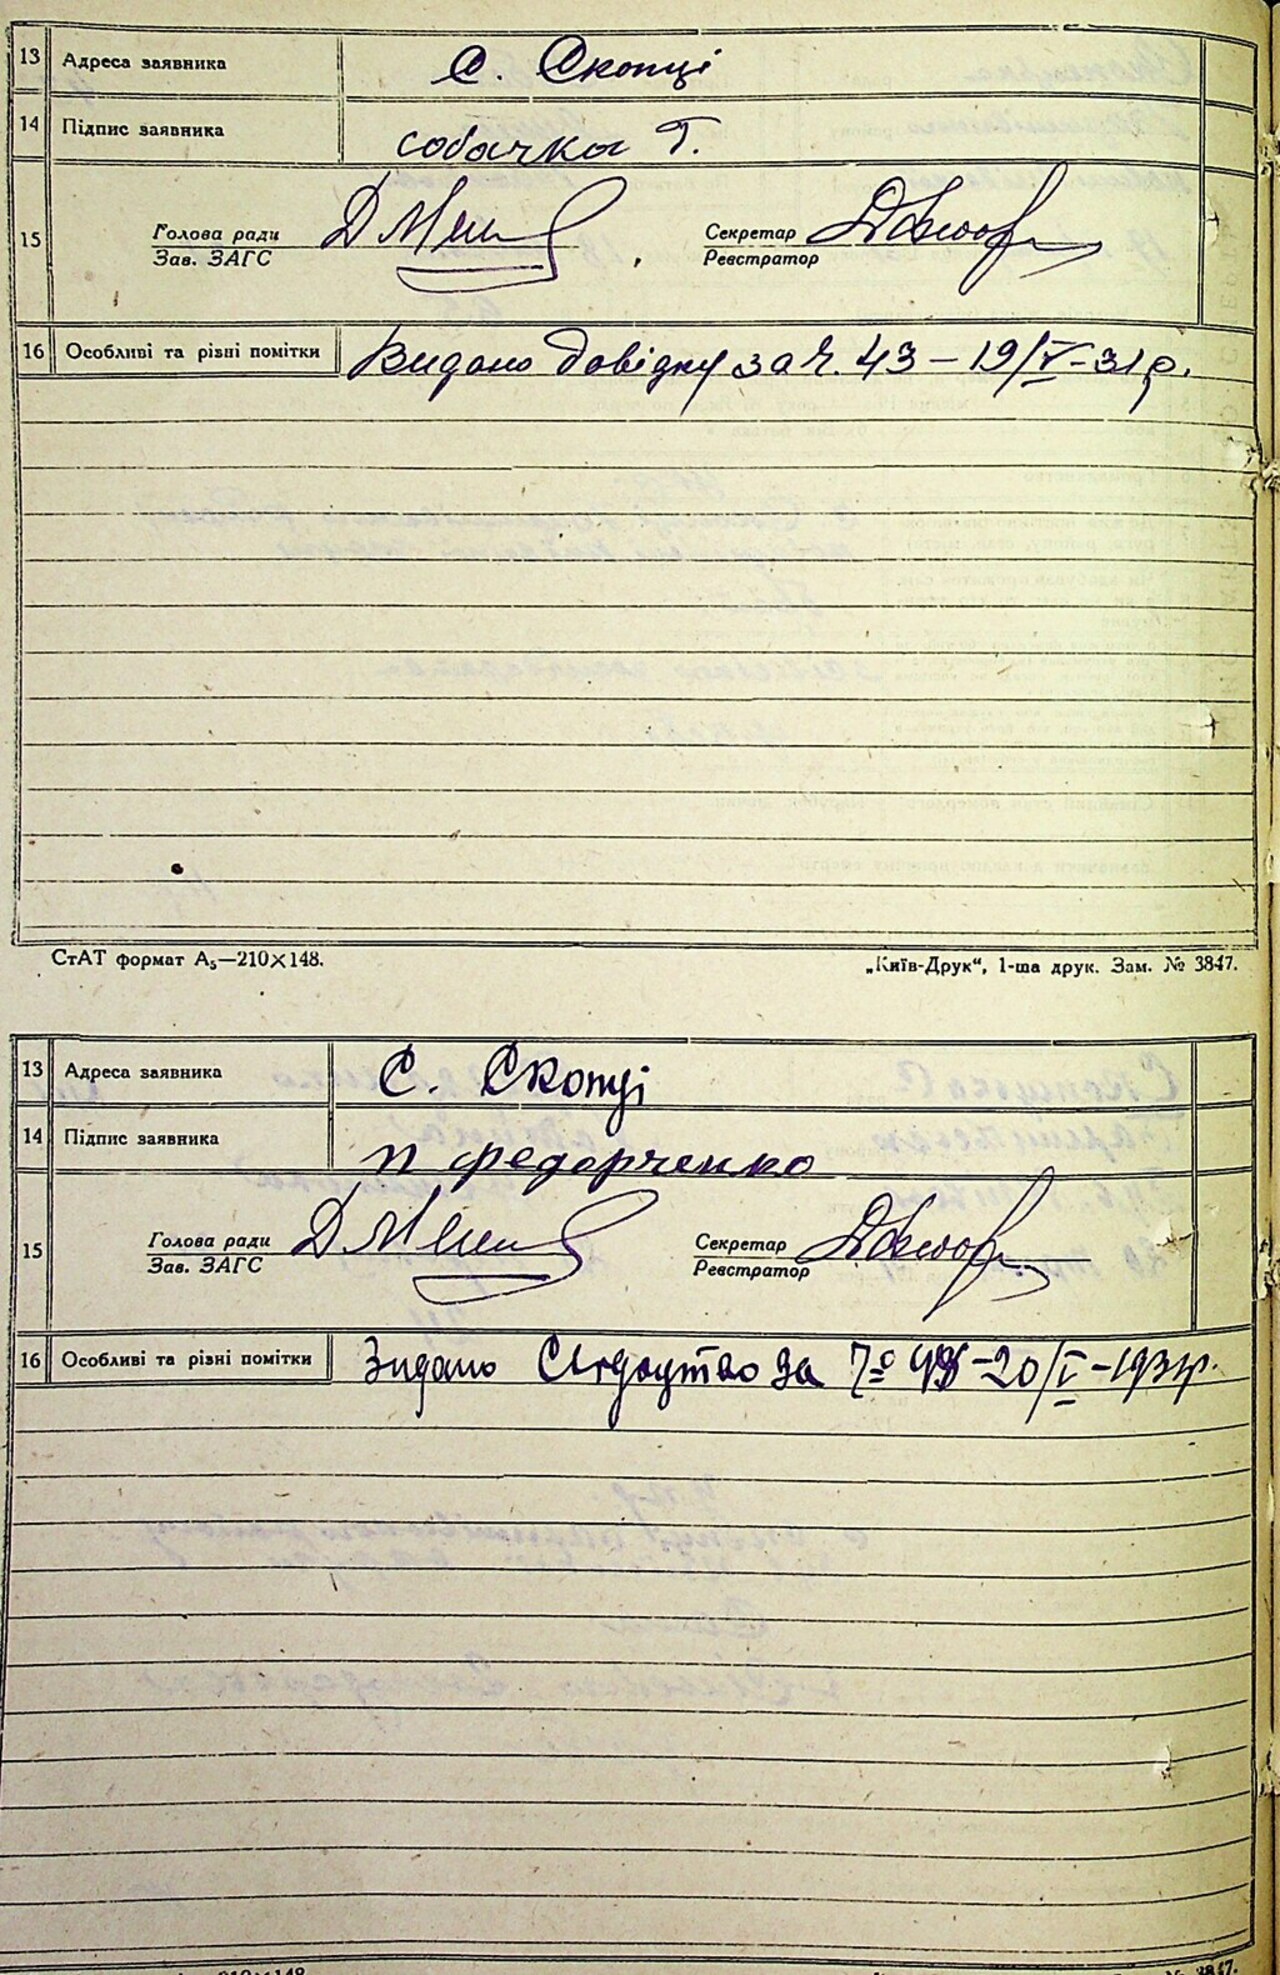 13 Адреса заявника с. Скопці
14 Підпис заявника собачка Г.
15 Голова ради Секретар
Зав. ЗАГС Реєстратор
16 Особливі та різні помітки Видано довідку за ч. 43 – 19/V-31р.
СтАТ формат А₅—210×148. „Київ-Друк“, 1-ша друк. Зам. № 3847.
13 Адреса заявника С. Скопці
14 Підпис заявника П Федорченко
15 Голова ради Секретар
Зав. ЗАГС Реєстратор
16 Особливі та різні помітки за -20/V-1931р.